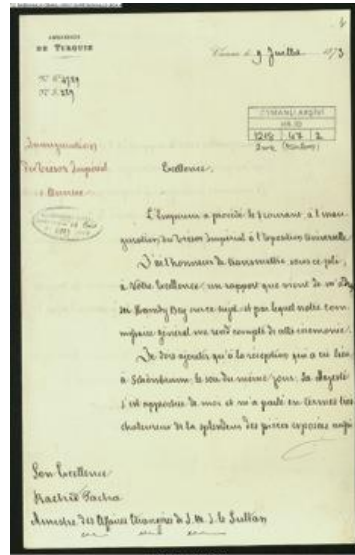 AMBASSADE
DE TURQUIE
Vienne le 9 Juillet 1873
OSMANLI ARŞİVİ
HR.TO
1218 47 2
Inauguration
du Trésor Impérial
Excellence,
L'Empereur a procédé le courant, à l'inau-
guration du Trésor Impérial à l'Exposition Universelle.
J'ai l'honneur de transmettre sous ce pli,
à Votre Excellence un rapport que vient de m'
Hamdy Bey sur ce sujet et par lequel notre com-
missaire général me rend compte de cette cérémonie.
Je dois ajouter qu'à la réception qui a eu lieu
à Schönbrunn le soir du même jour, Sa Majesté
s'est approchée de moi et m'a parlé en termes très
chaleureux de la splendeur des pièces exposées
Son Excellence
Rachid Pacha
Ministre des Affaires Etrangères de S. M. I. le Sultan